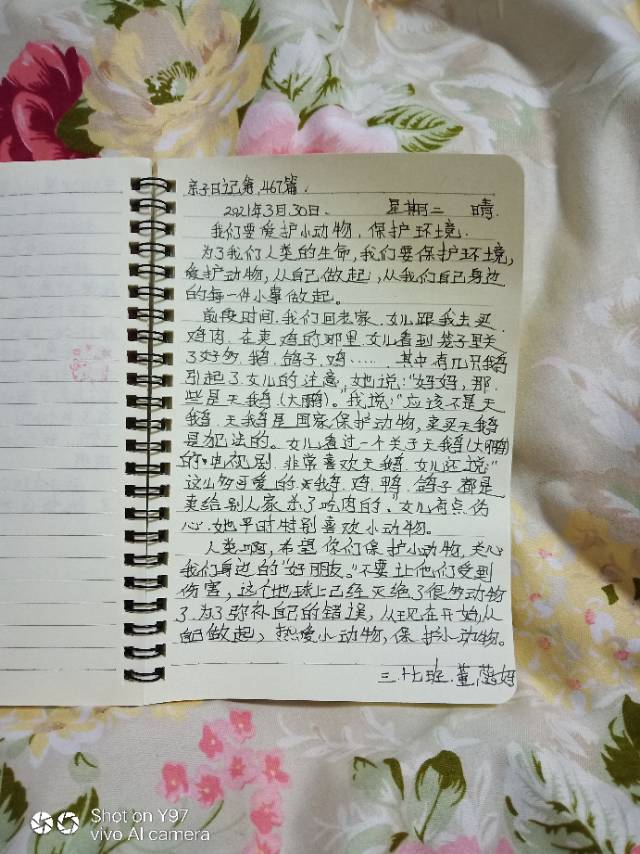 亲子日记第467篇.
2021年3月30日. 星期二 晴.
我们要爱护小动物,保护环境.
为了我们人类的生命,我们要保护环境,
爱护动物,从自己做起,从我们自己身边
的每一件小事做起。
前段时间.我们回老家.女儿跟我去买
鸡肉.在卖鸡的那里.女儿看到笼子里关
了好多鹅.鸽子.鸡…… 其中有几只鹅
引起了女儿的注意,她说:"妈妈,那
些是天鹅(大鹏)。"我说:"应该不是天
鹅.天鹅是国家保护动物,卖买天鹅
是犯法的。女儿看过一个关于天鹅(大鹏)
的电视剧.非常喜欢天鹅.女儿还说:"
这么多可爱的天鹅.鸡.鸭.鸽子都是
卖给别人家杀了吃肉的。"女儿有点伤
心.她平时特别喜欢小动物。
人类啊,希望你们保护小动物,关心
我们身边的"好朋友。"不要让他们受到
伤害,这个地球上已经灭绝了很多动物
了.为了弥补自己的错误,从现在开始,从
自己做起,热爱小动物,保护小动物。
三.七班.董 妈
Shot on Y97
vivo AI camera